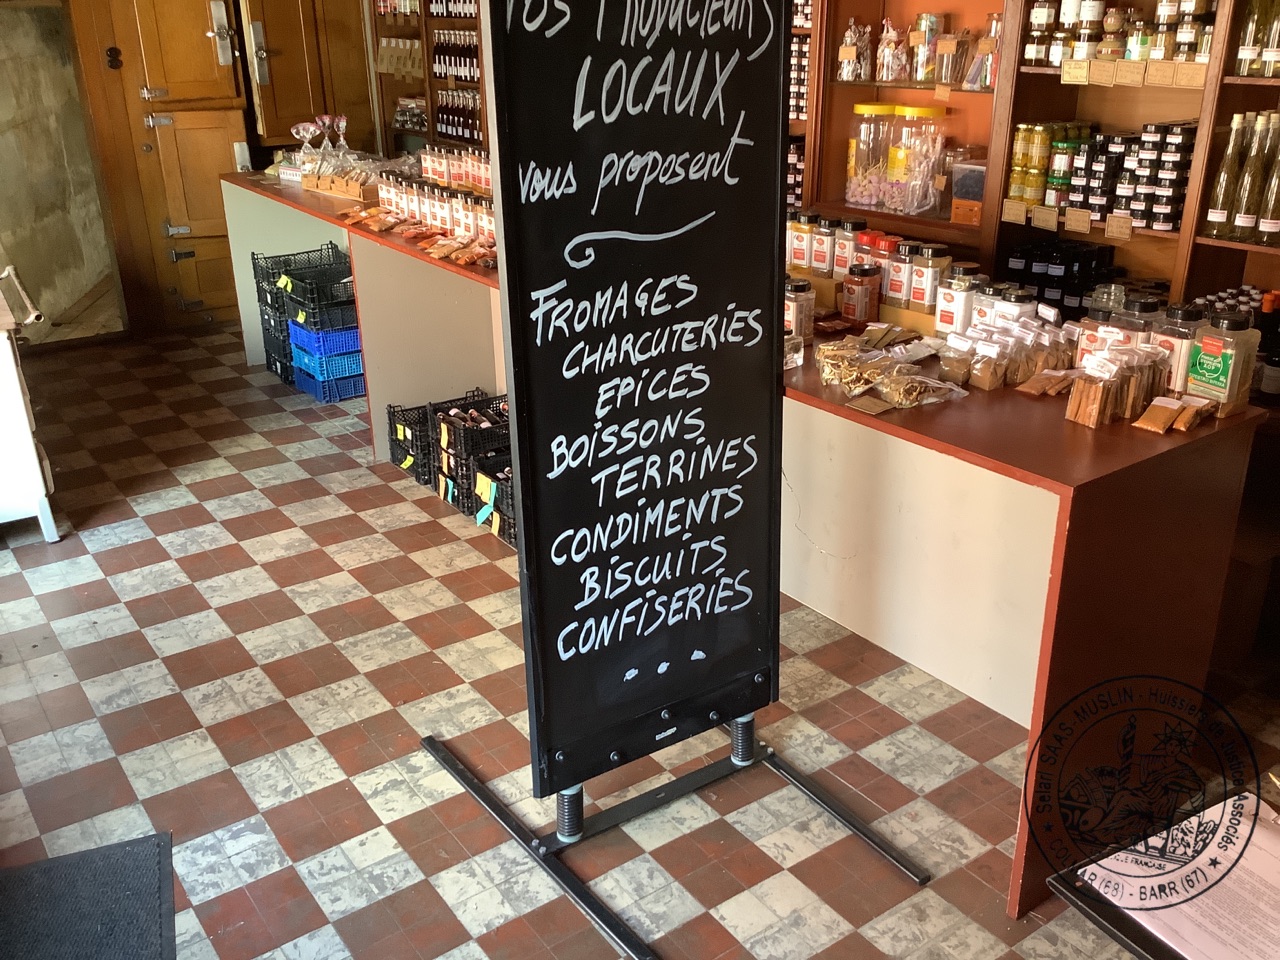 vos Producteurs
LOCAUX
vous proposent
FROMAGES
CHARCUTERIES
EPICES
BOISSONS
TERRINES
CONDIMENTS
BISCUITS
CONFISERIES
...
Selarl SAAS-MUSLIN - Huissiers de Justice Associés
COLMAR (68) - BARR (67)